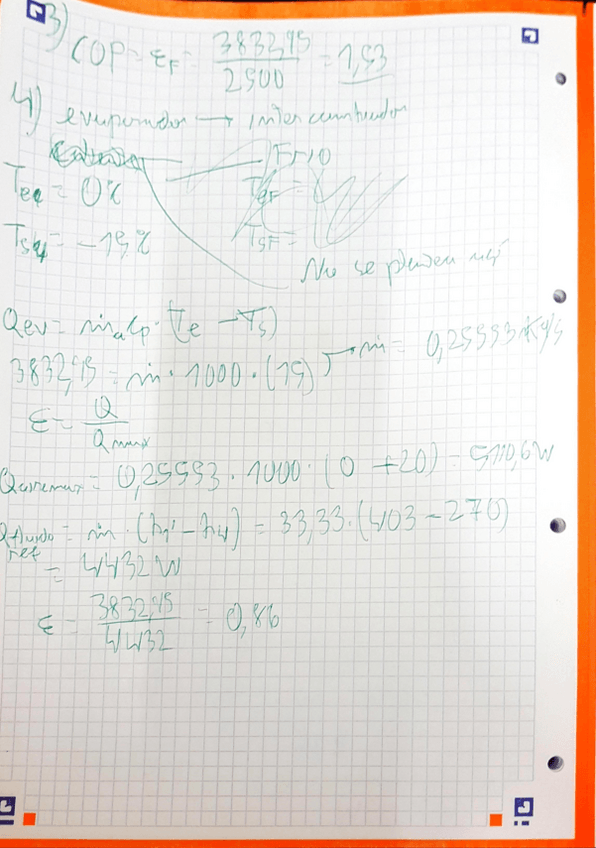 3)
COP = εF = 3832,95 / 2500 = 1,53
4) evaporador → intercambiador
Frio
Tea = 0ºC
TeF =
Tsa = -15ºC
TsF =
No se pueden
Qev = ṁa Cp · (Te - Ts)
3832,95 = ṁ · 1000 · (15) → ṁ = 0,25553 Kg/s
ε = Q / Qmax
Qairemax = 0,25553 · 1000 · (0 + 20) = 5110,6 W
Qfluido ref = ṁ · (h1' - h4) = 33,33 · (403 - 270)
= 4432 W
ε = 3832,95 / 4432 = 0,86